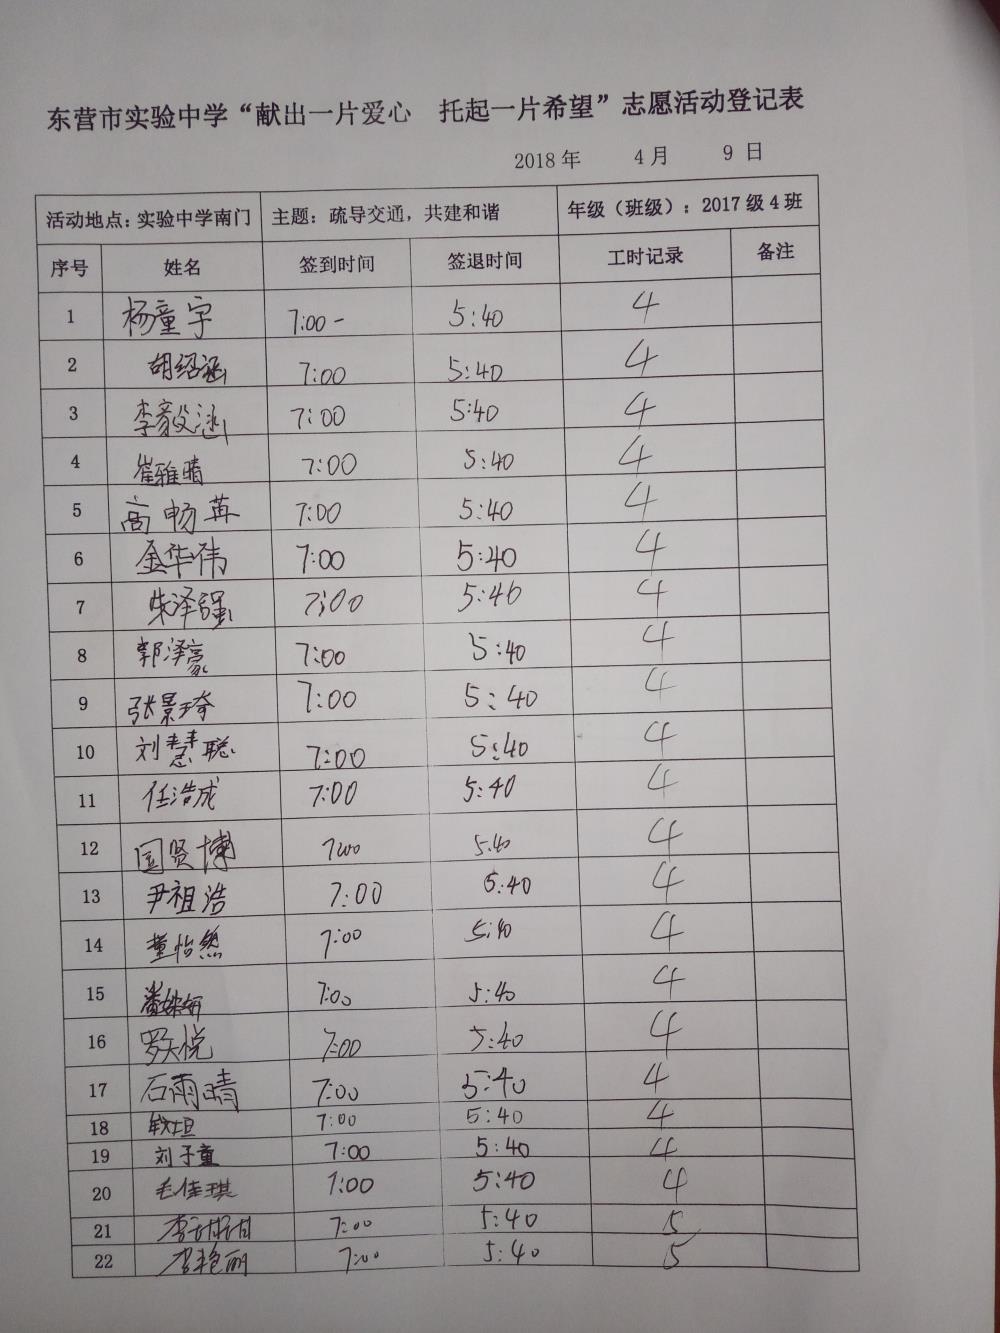 东营市实验中学“献出一片爱心 托起一片希望”志愿活动登记表
2018 年 4 月 9 日
活动地点：实验中学南门 主题：疏导交通，共建和谐 年级（班级）：2017 级 4 班
序号 姓名 签到时间 签退时间 工时记录 备注
1 杨童宇 7:00- 5:40 4
2 胡绍涵 7:00 5:40 4
3 李毅涵 7:00 5:40 4
4 崔雅晴 7:00 5:40 4
5 高畅苒 7:00 5:40 4
6 金华伟 7:00 5:40 4
7 朱泽强 7:00 5:40 4
8 郭泽豪 7:00 5:40 4
9 张景琦 7:00 5:40 4
10 刘慧聪 7:00 5:40 4
11 任浩成 7:00 5:40 4
12 国贤博 7:00 5:40 4
13 尹祖浩 7:00 5:40 4
14 董怡然 7:00 5:40 4
15 7:00 5:40 4
16 罗天悦 7:00 5:40 4
17 石雨晴 7:00 5:40 4
18 7:00 5:40 4
19 刘子童 7:00 5:40 4
20 毛佳琪 7:00 5:40 4
21 7:00 5:40 5
22 李艳丽 7:00 5:40 5